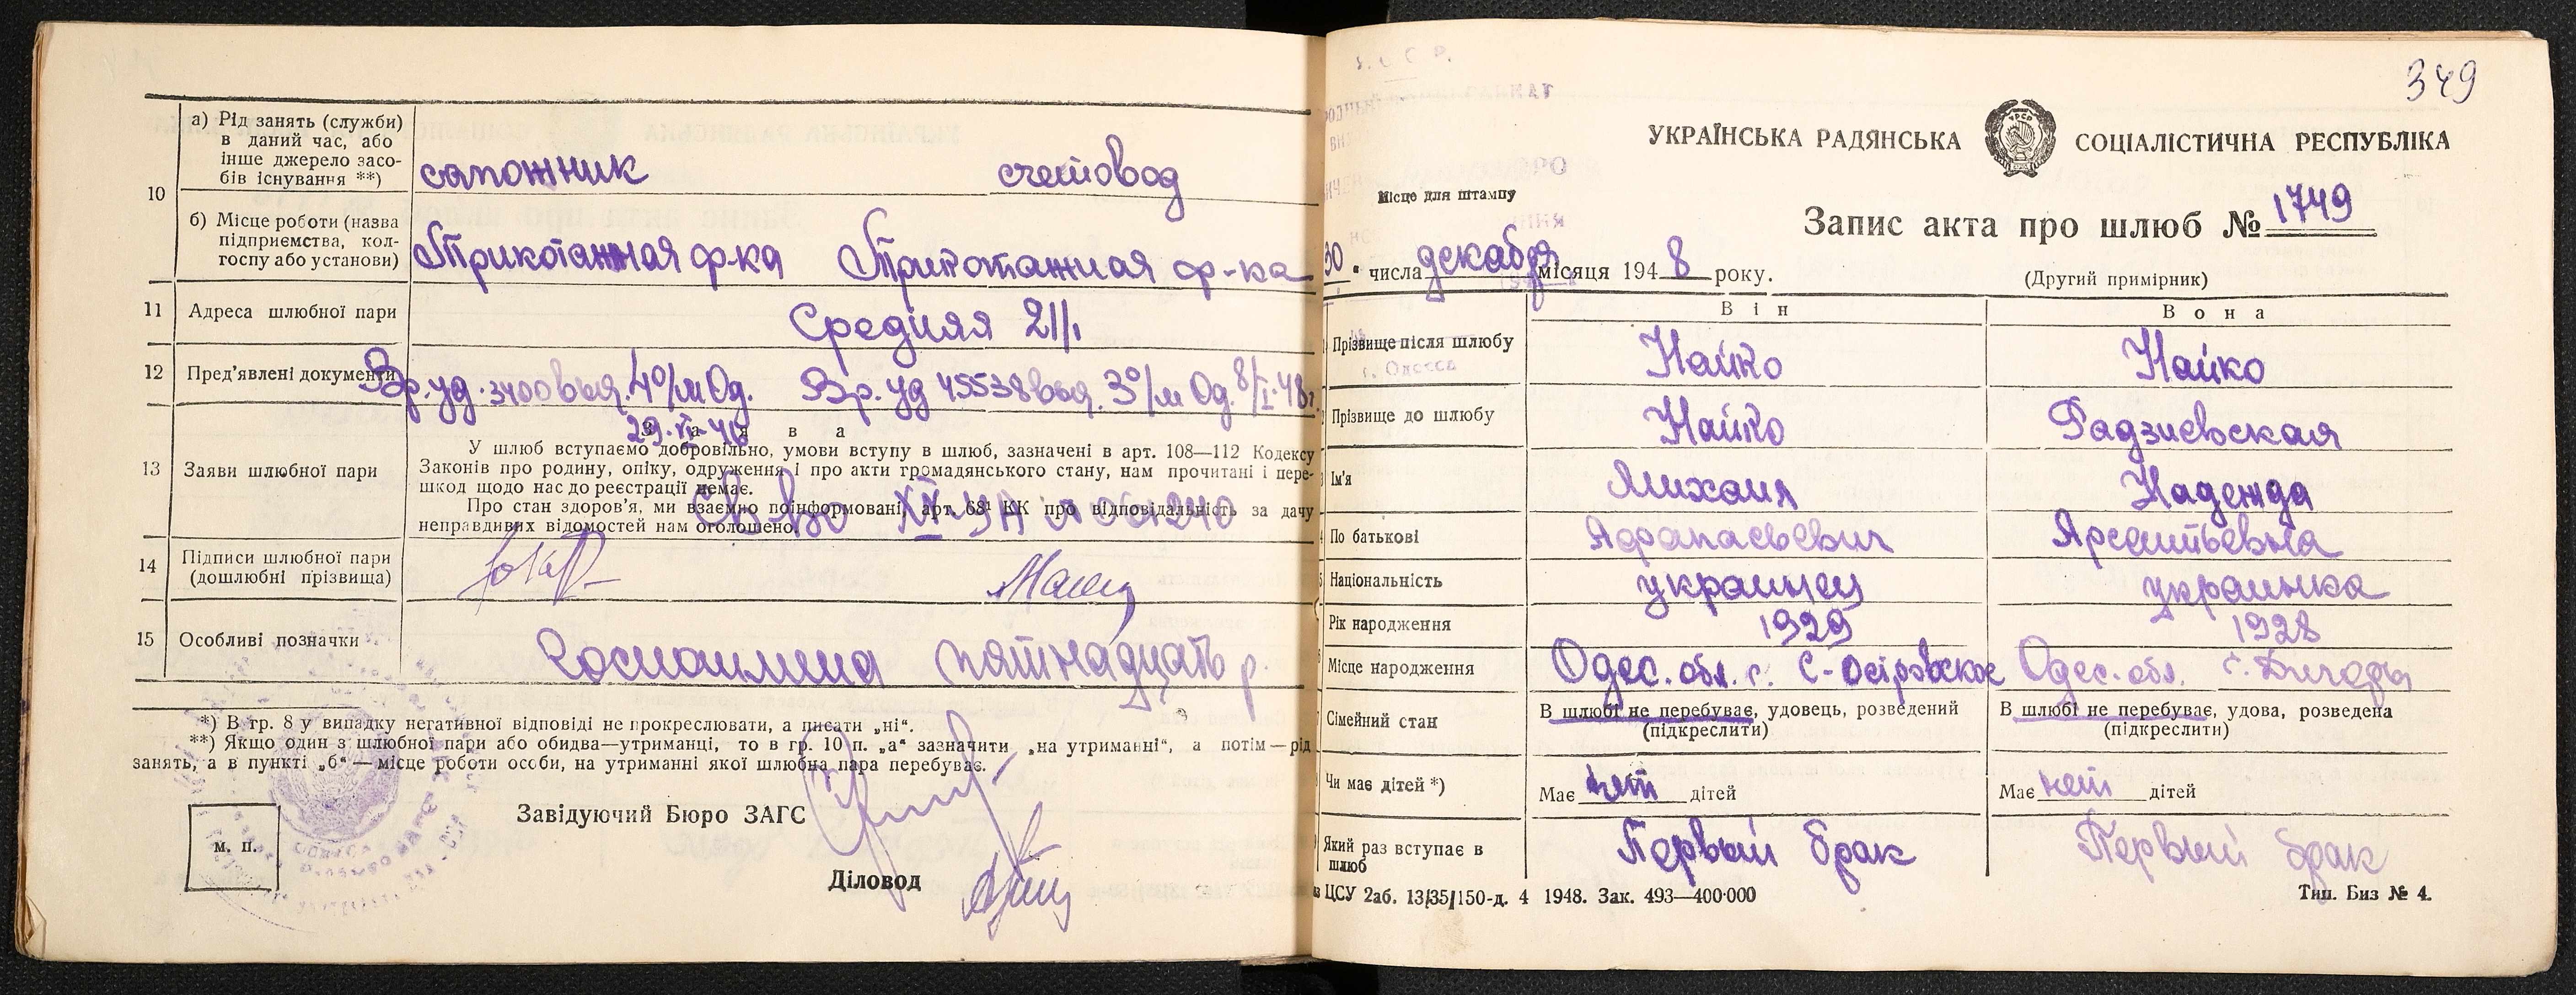 10
а) Рід занять (служби)
в даний час, або
інше джерело засо-
бів існування **)
сапожник счетовод
б) Місце роботи (назва
підприємства, кол-
госпу або установи)
Трикотажная ф-ка Трикотажная ф-ка
11 Адреса шлюбної пари Средняя 21/1
12 Пред'явлені документи Вр. уд. 3400 выд. 4 о/м Од. Вр. уд 45538 выд. 3 о/м Од. 8/I-48г.
Заява
13 Заяви шлюбної пари
У шлюб вступаємо добровільно, умови вступу в шлюб, зазначені в арт. 108—112 Кодексу
Законів про родину, опіку, одруження і про акти громадянського стану, нам прочитані і пере-
шкод щодо нас до реєстрації немає.
Про стан здоров'я, ми взаємно поінформовані, арт. 68¹ КК про відповідальність за дачу
неправдивих відомостей нам оголошено.
14 Підписи шлюбної пари
(дошлюбні прізвища)
15 Особливі позначки пятнадцать р.
*) В гр. 8 у випадку негативної відповіді не прокреслювати, а писати „ні“.
**) Якщо один з шлюбної пари або обидва—утриманці, то в гр. 10 п. „а“ зазначити „на утриманні“, а потім—рід
занять, а в пункті „б“—місце роботи особи, на утриманні якої шлюбна пара перебуває.
Завідуючий Бюро ЗАГС
м. п.
Діловод
349
УКРАЇНСЬКА РАДЯНСЬКА СОЦІАЛІСТИЧНА РЕСПУБЛІКА
Місце для штампу
Запис акта про шлюб № 1749
30 " числа декабря місяця 1948 року.
(Другий примірник)
Він Вона
Прізвище після шлюбу Найко Найко
г. Одесса
Прізвище до шлюбу Найко Радзиевская
Ім'я Михаил Надежда
По батькові Афанасьевич Арсентьевна
Національність украинец украинка
Рік народження 1929 1928
Місце народження Одес. обл. с. С-Островское Одес. обл. с.
Сімейний стан
В шлюбі не перебуває, удовець, розведений
(підкреслити)
В шлюбі не перебуває, удова, розведена
(підкреслити)
Чи має дітей *) Має нет дітей Має нет дітей
Який раз вступає в
шлюб
Первый брак Первый брак
ЦСУ 2аб. 13/35/150-д. 4 1948. Зак. 493—400·000
Тип. Биз № 4.